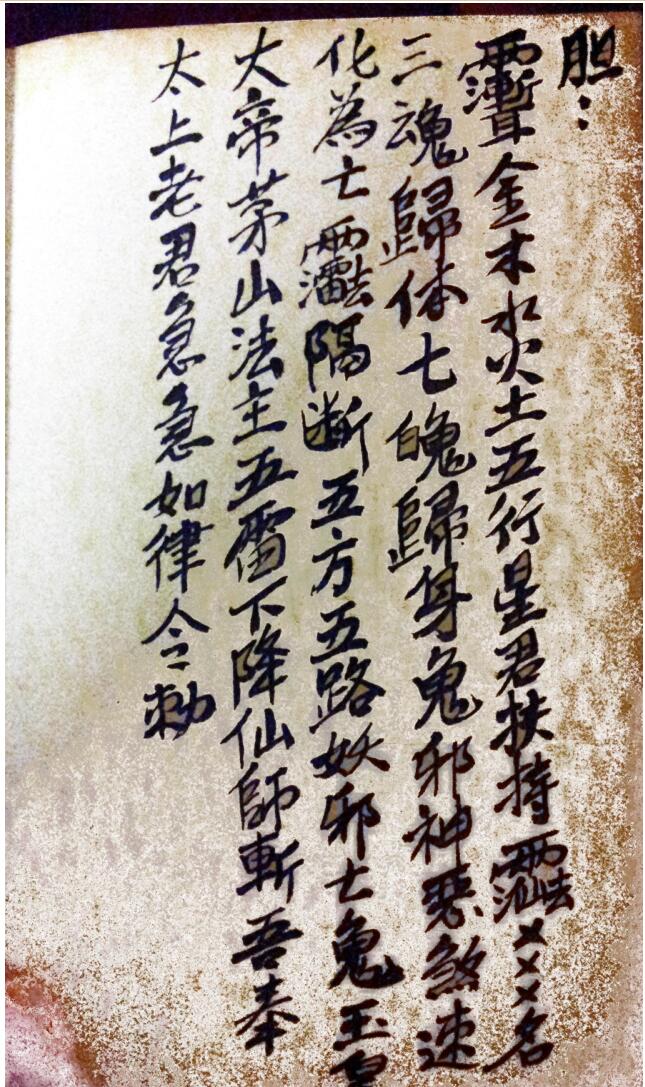 胆：
金木水火土五行星君扶持×××名
三魂歸体七魄歸身鬼邪神惡煞速
化為亡隔断五方五路妖邪亡鬼玉皇
大帝茅山法主五雷下降仙師斬吾奉
太上老君急急如律令敕